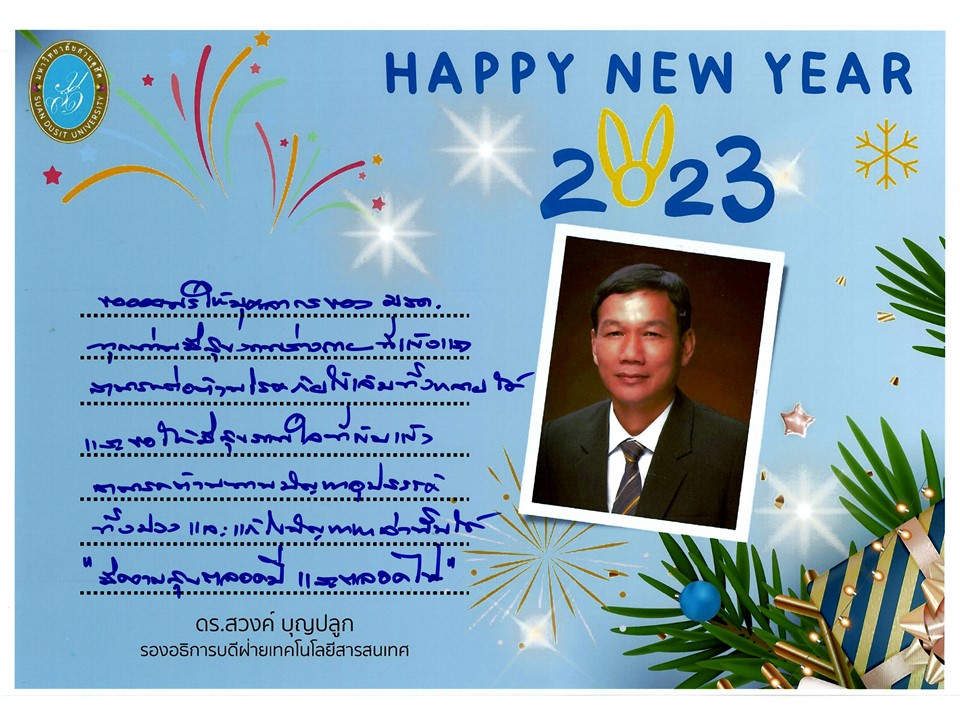 มหาวิทยาลัยสวนดุสิต
SUAN DUSIT UNIVERSITY
HAPPY NEW YEAR
2023
ขออวยพรให้บุคลากรของ มสด.
ทุกท่านมีสุขภาพร่างกาย ที่แข็งแรง
สามารถต่อต้านโรคภัยไข้เจ็บทั้งหลายได้
และขอให้มีสุขภาพใจที่เข้มแข็ง
สามารถต้านทานปัญหาอุปสรรค
ทั้งปวง และแก้ไขปัญหาเหล่านั้นได้
"มีความสุขตลอดปี และตลอดไป"
ดร.สวงค์ บุญปลูก
รองอธิการบดีฝ่ายเทคโนโลยีสารสนเทศ